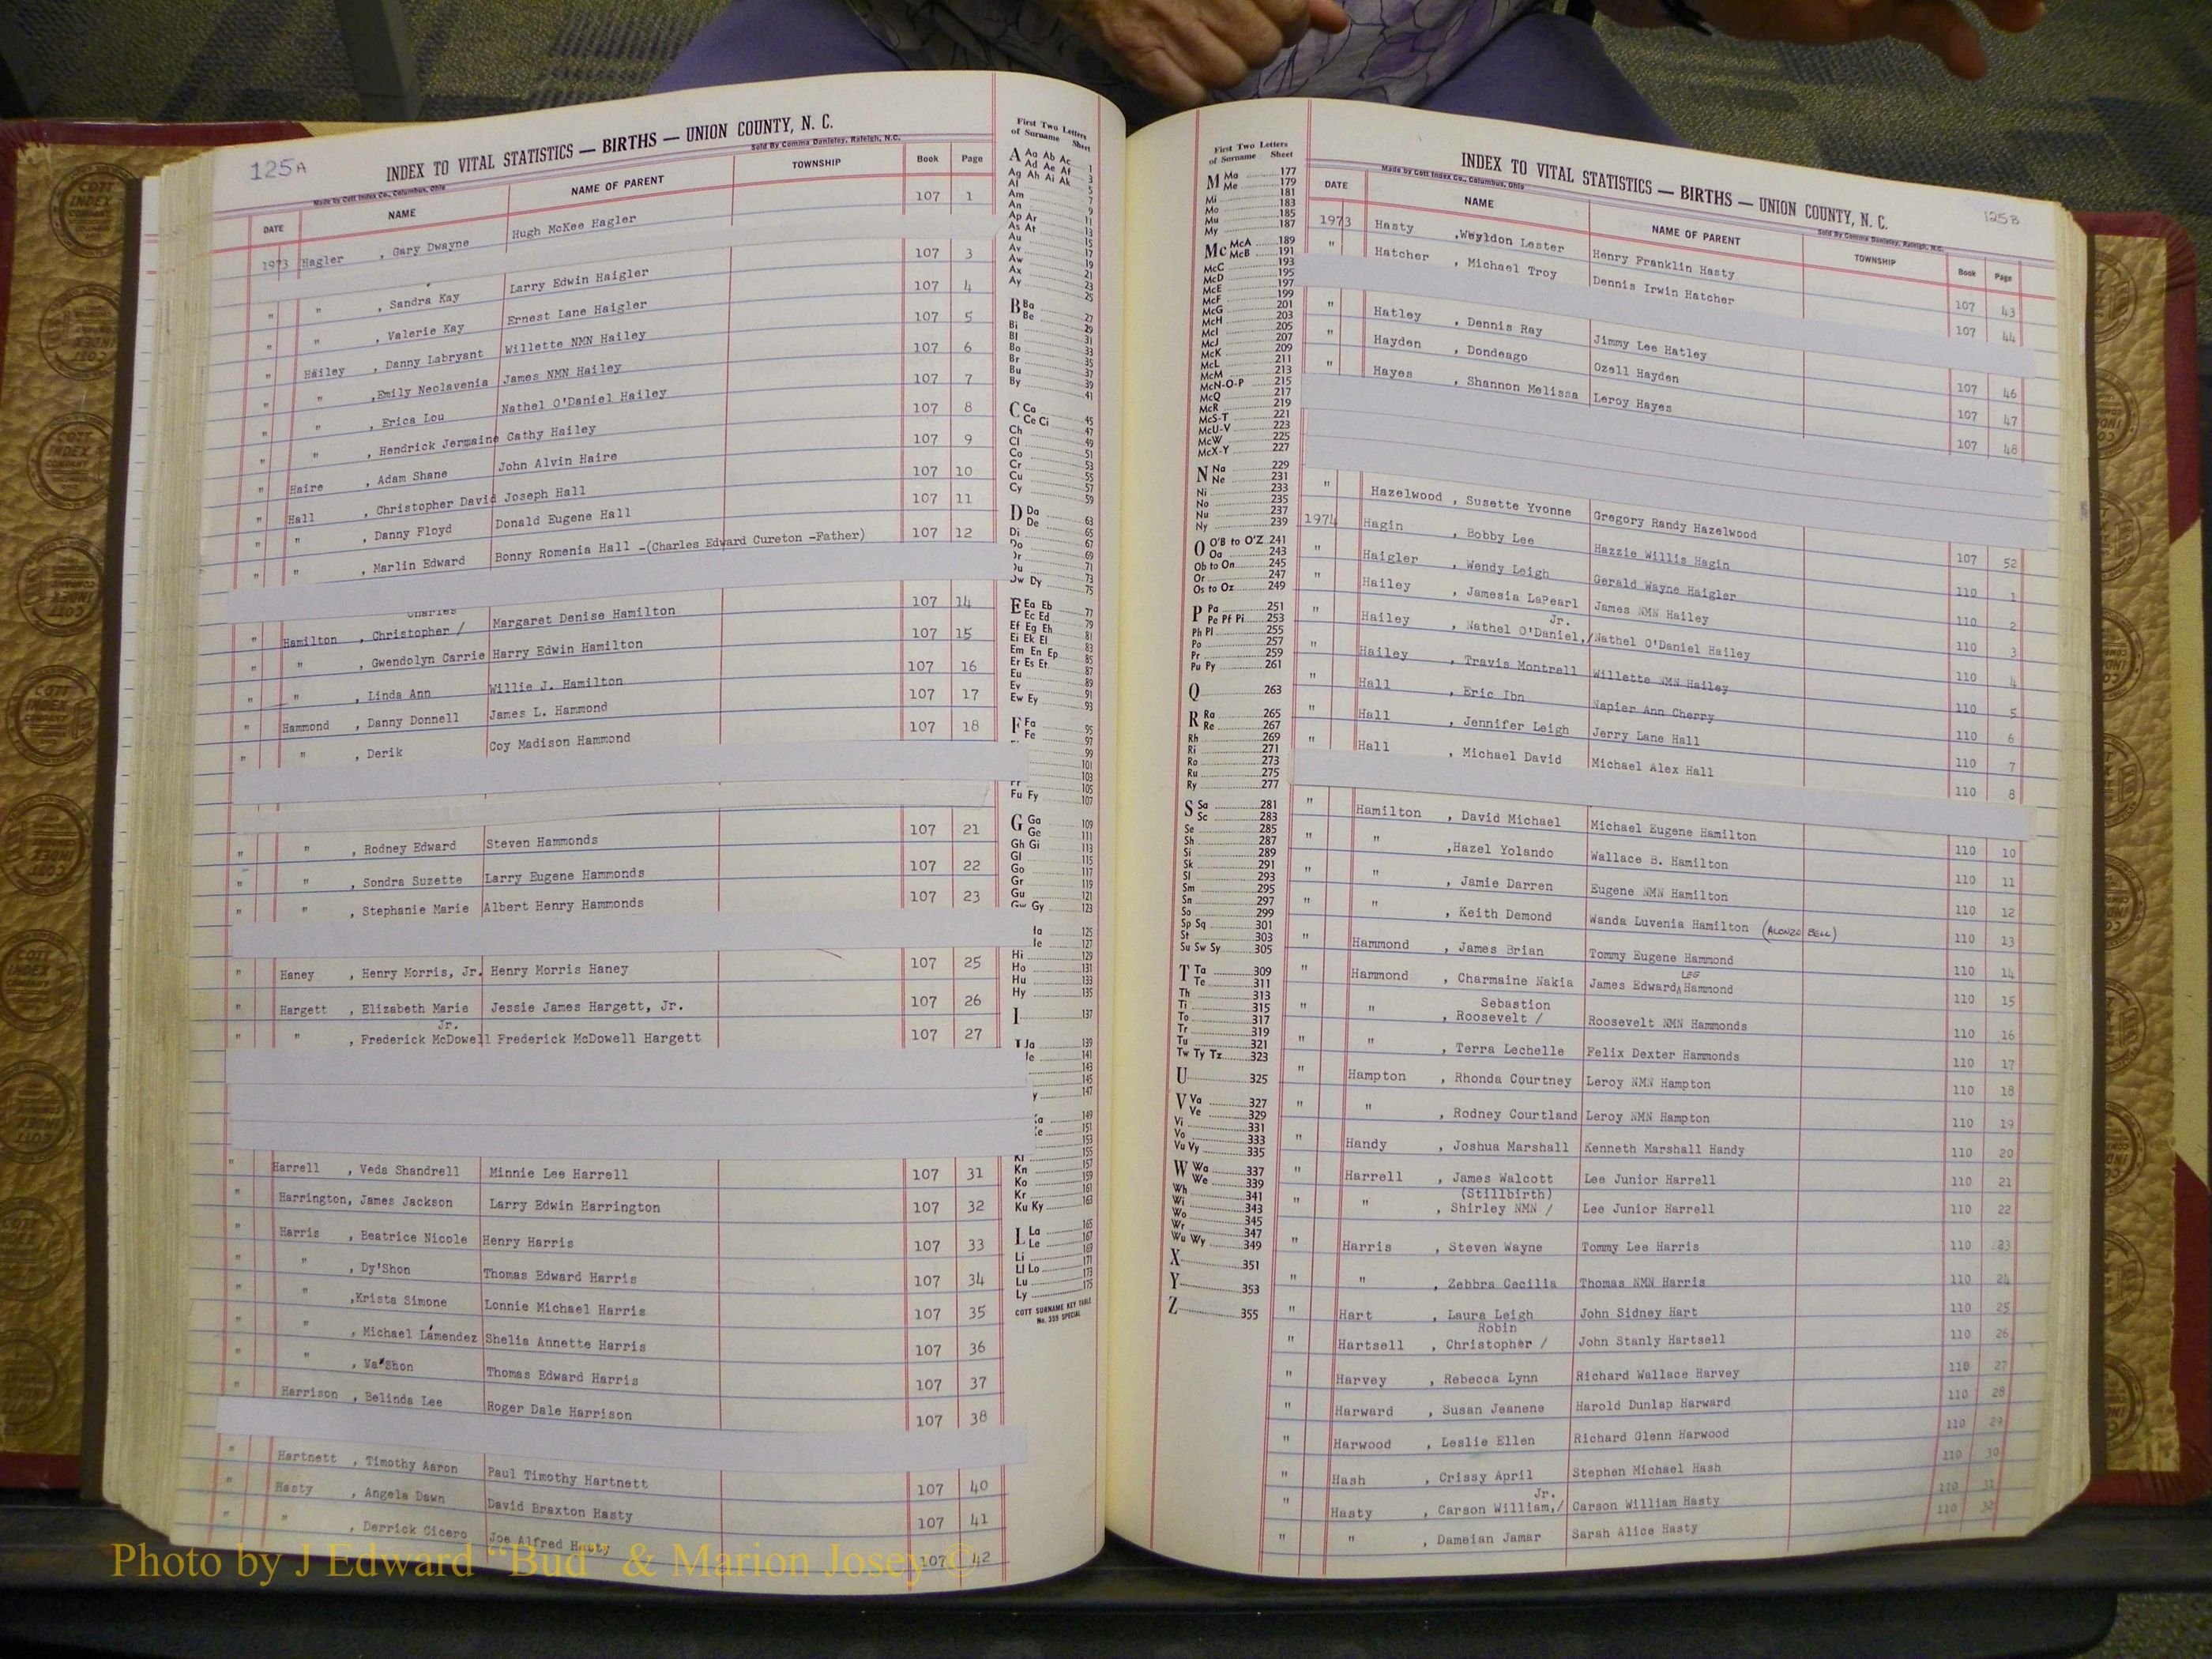 125A
INDEX TO VITAL STATISTICS — BIRTHS — UNION COUNTY, N. C.
Made by Cott Index Co., Columbus, Ohio
Sold By Comma Danieley, Raleigh, N.C.
DATE NAME NAME OF PARENT TOWNSHIP Book Page
1973 Hagler , Gary Dwayne Hugh McKee Hagler 107 1
" " , Sandra Kay Larry Edwin Haigler 107 3
" " , Valerie Kay Ernest Lane Haigler 107 4
" Hailey , Danny Labryant Willette NMN Hailey 107 5
" " ,Emily Neolavenia James NMN Hailey 107 6
" " , Erica Lou Nathel O'Daniel Hailey 107 7
" " , Hendrick Jermaine Cathy Hailey 107 8
" Haire , Adam Shane John Alvin Haire 107 9
" Hall , Christopher David Joseph Hall 107 10
" " , Danny Floyd Donald Eugene Hall 107 11
" " , Marlin Edward Bonny Romenia Hall -(Charles Edward Cureton -Father) 107 12
Charles
" Hamilton , Christopher / Margaret Denise Hamilton 107 14
" " , Gwendolyn Carrie Harry Edwin Hamilton 107 15
" " , Linda Ann Willie J. Hamilton 107 16
" Hammond , Danny Donnell James L. Hammond 107 17
" " , Derik Coy Madison Hammond 107 18
" " , Rodney Edward Steven Hammonds 107 21
" " , Sondra Suzette Larry Eugene Hammonds 107 22
" " , Stephanie Marie Albert Henry Hammonds 107 23
" Haney , Henry Morris, Jr. Henry Morris Haney 107 25
" Hargett , Elizabeth Marie Jessie James Hargett, Jr. 107 26
Jr.
" " , Frederick McDowell Frederick McDowell Hargett 107 27
" Harrell , Veda Shandrell Minnie Lee Harrell 107 31
" Harrington, James Jackson Larry Edwin Harrington 107 32
" Harris , Beatrice Nicole Henry Harris 107 33
" " , Dy'Shon Thomas Edward Harris 107 34
" " ,Krista Simone Lonnie Michael Harris 107 35
" " , Michael Lamendez Shelia Annette Harris 107 36
" " , Va'Shon Thomas Edward Harris 107 37
" Harrison , Belinda Lee Roger Dale Harrison 107 38
" Hartnett , Timothy Aaron Paul Timothy Hartnett 107 40
" Hasty , Angela Dawn David Braxton Hasty 107 41
" " , Derrick Cicero Joe Alfred Hasty 107 42
First Two Letters
of Surname Sheet
A Aa Ab Ac 1
Ad Ae Af 3
Ag Ah Ai Ak 5
Al 7
Am 9
An 11
Ap Ar 13
As At 15
Au 17
Av 19
Aw 21
Ax 23
Ay 25
B Ba 27
Be 29
Bi 31
Bl 33
Bo 35
Br 37
Bu 39
By 41
C Ca 45
Ce Ci 47
Ch 49
Cl 51
Co 53
Cr 55
Cu 57
Cy 59
D Da 63
De 65
Di 67
Do 69
Dr 71
Du 73
Dw Dy 75
E Ea Eb 77
Ec Ed 79
Ef Eg Eh 81
Ei Ek El 83
Em En Ep 85
Er Es Et 87
Eu 89
Ev 91
Ew Ey 93
F Fa 95
Fe 97
99
101
103
105
Fu Fy 107
G Ga 109
Ge 111
Gh Gi 113
Gl 115
Go 117
Gr 119
Gu 121
Gw Gy 123
125
127
Hi 129
Ho 131
Hu 133
Hy 135
I 137
Ja 139
141
143
145
147
149
151
153
155
Kn 157
Ko 159
Kr 161
Ku Ky 163
L La 165
Le 167
Li 169
Ll Lo 171
Lu 173
Ly 175
COTT SURNAME KEY TABLE
No. 355 SPECIAL
First Two Letters
of Surname Sheet
M Ma 177
Me 179
Mi 181
Mo 183
Mu 185
My 187
Mc McA 189
McB 191
McC 193
McD 195
McE 197
McF 199
McG 201
McH 203
McI 205
McJ 207
McK 209
McL 211
McM 213
McN-O-P 215
McQ 217
McR 219
McS-T 221
McU-V 223
McW 225
McX-Y 227
N Na 229
Ne 231
Ni 233
No 235
Nu 237
Ny 239
O O'B to O'Z 241
Oa 243
Ob to On 245
Or 247
Os to Oz 249
P Pa 251
Pe Pf Pi 253
Ph Pl 255
Po 257
Pr 259
Pu Py 261
Q 263
R Ra 265
Re 267
Rh 269
Ri 271
Ro 273
Ru 275
Ry 277
S Sa 281
Sc 283
Se 285
Sh 287
Si 289
Sk 291
Sl 293
Sm 295
Sn 297
So 299
Sp Sq 301
St 303
Su Sw Sy 305
T Ta 309
Te 311
Th 313
Ti 315
To 317
Tr 319
Tu 321
Tw Ty Tz 323
U 325
V Va 327
Ve 329
Vi 331
Vo 333
Vu Vy 335
W Wa 337
We 339
Wh 341
Wi 343
Wo 345
Wr 347
Wu Wy 349
X 351
Y 353
Z 355
INDEX TO VITAL STATISTICS — BIRTHS — UNION COUNTY, N. C.
125B
Made by Cott Index Co., Columbus, Ohio
Sold By Comma Danieley, Raleigh, N.C.
DATE NAME NAME OF PARENT TOWNSHIP Book Page
1973 Hasty ,Weyldon Lester Henry Franklin Hasty 107 43
" Hatcher , Michael Troy Dennis Irwin Hatcher 107 44
" Hatley , Dennis Ray Jimmy Lee Hatley 107 46
" Hayden , Dondeago Ozell Hayden 107 47
" Hayes , Shannon Melissa Leroy Hayes 107 48
" Hazelwood , Susette Yvonne Gregory Randy Hazelwood 107 52
1974 Hagin , Bobby Lee Hazzie Willis Hagin 110 1
" Haigler , Wendy Leigh Gerald Wayne Haigler 110 2
" Hailey , Jamesia LaPearl James NMN Hailey 110 3
Jr.
" Hailey , Nathel O'Daniel,/Nathel O'Daniel Hailey 110 4
" Hailey , Travis Montrell Willette NMN Hailey 110 5
" Hall , Eric Ibn Napier Ann Cherry 110 6
" Hall , Jennifer Leigh Jerry Lane Hall 110 7
" Hall , Michael David Michael Alex Hall 110 8
" Hamilton , David Michael Michael Eugene Hamilton 110 10
" " ,Hazel Yolando Wallace B. Hamilton 110 11
" " , Jamie Darren Eugene NMN Hamilton 110 12
" " , Keith Demond Wanda Luvenia Hamilton (ALONZO BELL) 110 13
" Hammond , James Brian Tommy Eugene Hammond 110 14
Lee
" Hammond , Charmaine Nakia James Edward Hammond 110 15
Sebastion
" " , Roosevelt / Roosevelt NMN Hammonds 110 16
" " , Terra Lechelle Felix Dexter Hammonds 110 17
" Hampton , Rhonda Courtney Leroy NMN Hampton 110 18
" " , Rodney Courtland Leroy NMN Hampton 110 19
" Handy , Joshua Marshall Kenneth Marshall Handy 110 20
" Harrell , James Walcott Lee Junior Harrell 110 21
(Stillbirth)
" " , Shirley NMN / Lee Junior Harrell 110 22
" Harris , Steven Wayne Tommy Lee Harris 110 23
" " , Zebbra Cecilia Thomas NMN Harris 110 24
" Hart , Laura Leigh John Sidney Hart 110 25
Robin
" Hartsell , Christopher / John Stanly Hartsell 110 26
" Harvey , Rebecca Lynn Richard Wallace Harvey 110 27
" Harward , Susan Jeanene Harold Dunlap Harward 110 28
" Harwood , Leslie Ellen Richard Glenn Harwood 110 29
" Hash , Crissy April Stephen Michael Hash 110 30
Jr.
" Hasty , Carson William,/ Carson William Hasty 110 31
" " , Dameian Jamar Sarah Alice Hasty 110 32
Photo by J Edward “Bud” & Marion Josey ©